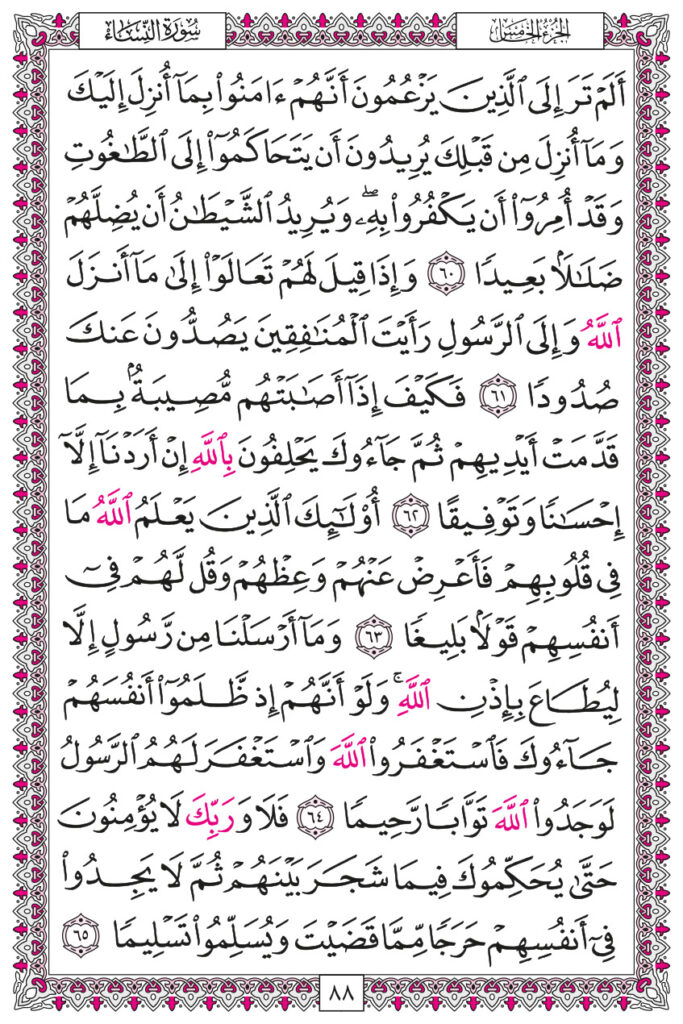 الجزء الخامس
سورة النساء
أَلَمْ تَرَ إِلَى ٱلَّذِينَ يَزْعُمُونَ أَنَّهُمْ ءَامَنُوا۟ بِمَآ أُنزِلَ إِلَيْكَ
وَمَآ أُنزِلَ مِن قَبْلِكَ يُرِيدُونَ أَن يَتَحَاكَمُوٓا۟ إِلَى ٱلطَّـٰغُوتِ
وَقَدْ أُمِرُوٓا۟ أَن يَكْفُرُوا۟ بِهِۦۖ وَيُرِيدُ ٱلشَّيْطَـٰنُ أَن يُضِلَّهُمْ
ضَلَـٰلًۢا بَعِيدًا ٦٠ وَإِذَا قِيلَ لَهُمْ تَعَالَوْا۟ إِلَىٰ مَآ أَنزَلَ
ٱللَّهُ وَإِلَى ٱلرَّسُولِ رَأَيْتَ ٱلْمُنَـٰفِقِينَ يَصُدُّونَ عَنكَ
صُدُودًا ٦١ فَكَيْفَ إِذَآ أَصَـٰبَتْهُم مُّصِيبَةٌۢ بِمَا
قَدَّمَتْ أَيْدِيهِمْ ثُمَّ جَآءُوكَ يَحْلِفُونَ بِٱللَّهِ إِنْ أَرَدْنَآ إِلَّآ
إِحْسَـٰنًا وَتَوْفِيقًا ٦٢ أُو۟لَـٰٓئِكَ ٱلَّذِينَ يَعْلَمُ ٱللَّهُ مَا
فِى قُلُوبِهِمْ فَأَعْرِضْ عَنْهُمْ وَعِظْهُمْ وَقُل لَّهُمْ فِىٓ
أَنفُسِهِمْ قَوْلًۢا بَلِيغًا ٦٣ وَمَآ أَرْسَلْنَا مِن رَّسُولٍ إِلَّا
لِيُطَاعَ بِإِذْنِ ٱللَّهِۚ وَلَوْ أَنَّهُمْ إِذ ظَّلَمُوٓا۟ أَنفُسَهُمْ
جَآءُوكَ فَٱسْتَغْفَرُوا۟ ٱللَّهَ وَٱسْتَغْفَرَ لَهُمُ ٱلرَّسُولُ
لَوَجَدُوا۟ ٱللَّهَ تَوَّابًا رَّحِيمًا ٦٤ فَلَا وَرَبِّكَ لَا يُؤْمِنُونَ
حَتَّىٰ يُحَكِّمُوكَ فِيمَا شَجَرَ بَيْنَهُمْ ثُمَّ لَا يَجِدُوا۟
فِىٓ أَنفُسِهِمْ حَرَجًا مِّمَّا قَضَيْتَ وَيُسَلِّمُوا۟ تَسْلِيمًا ٦٥
٨٨